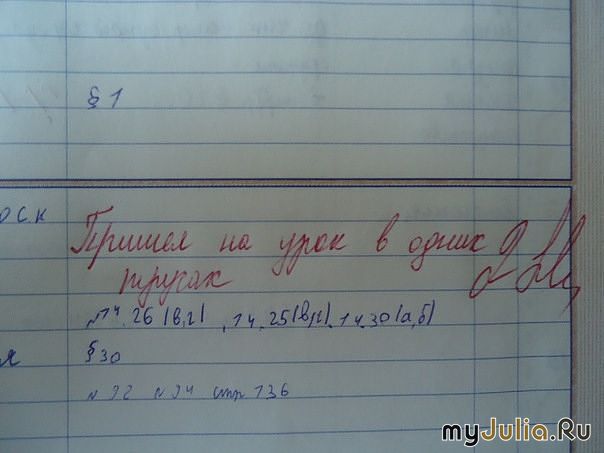 § 1
оск
Пришел на урок в одних 2
трусах
№14.26(в,г), 14.25(в,г), 14.30(а,б)
я § 30
№ 92 № 94 стр 136
myJulia.Ru